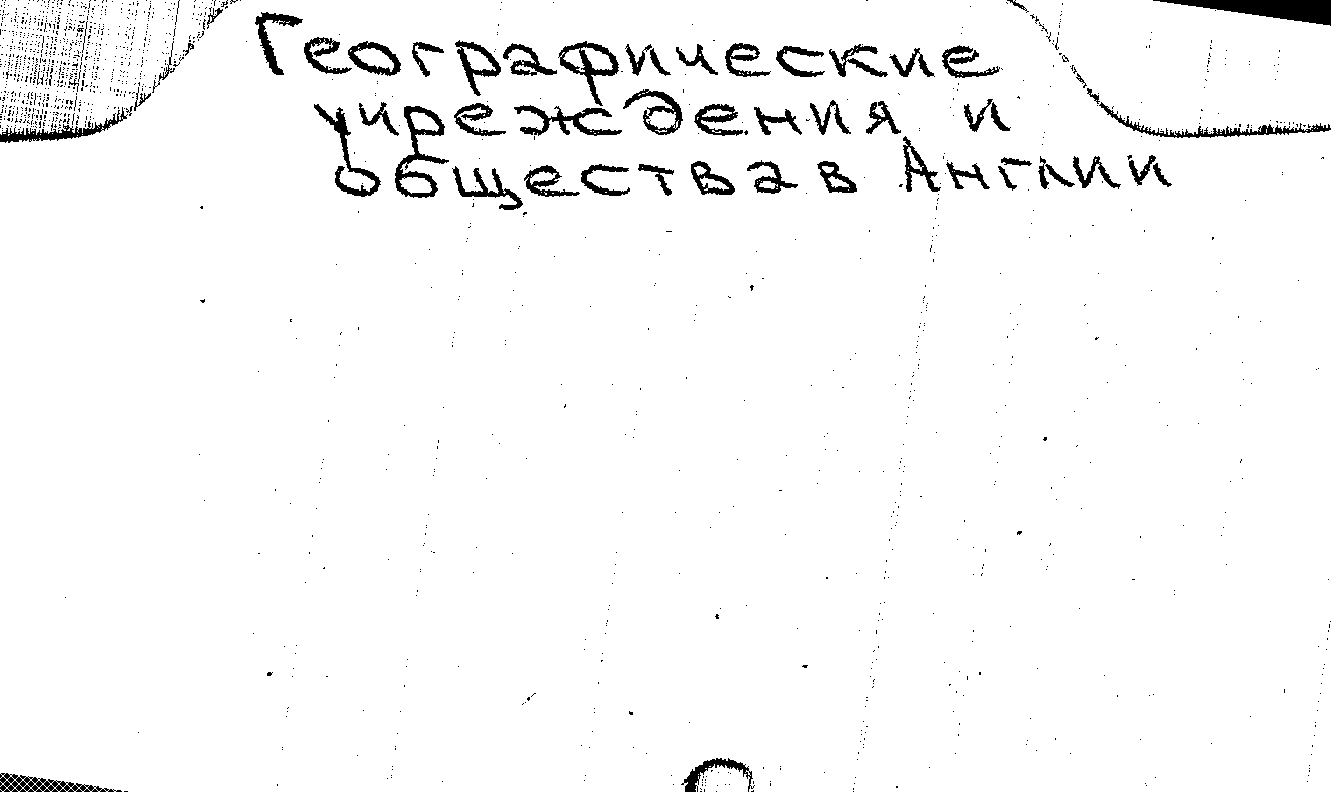 Географические
учреждения и
общества в Англии